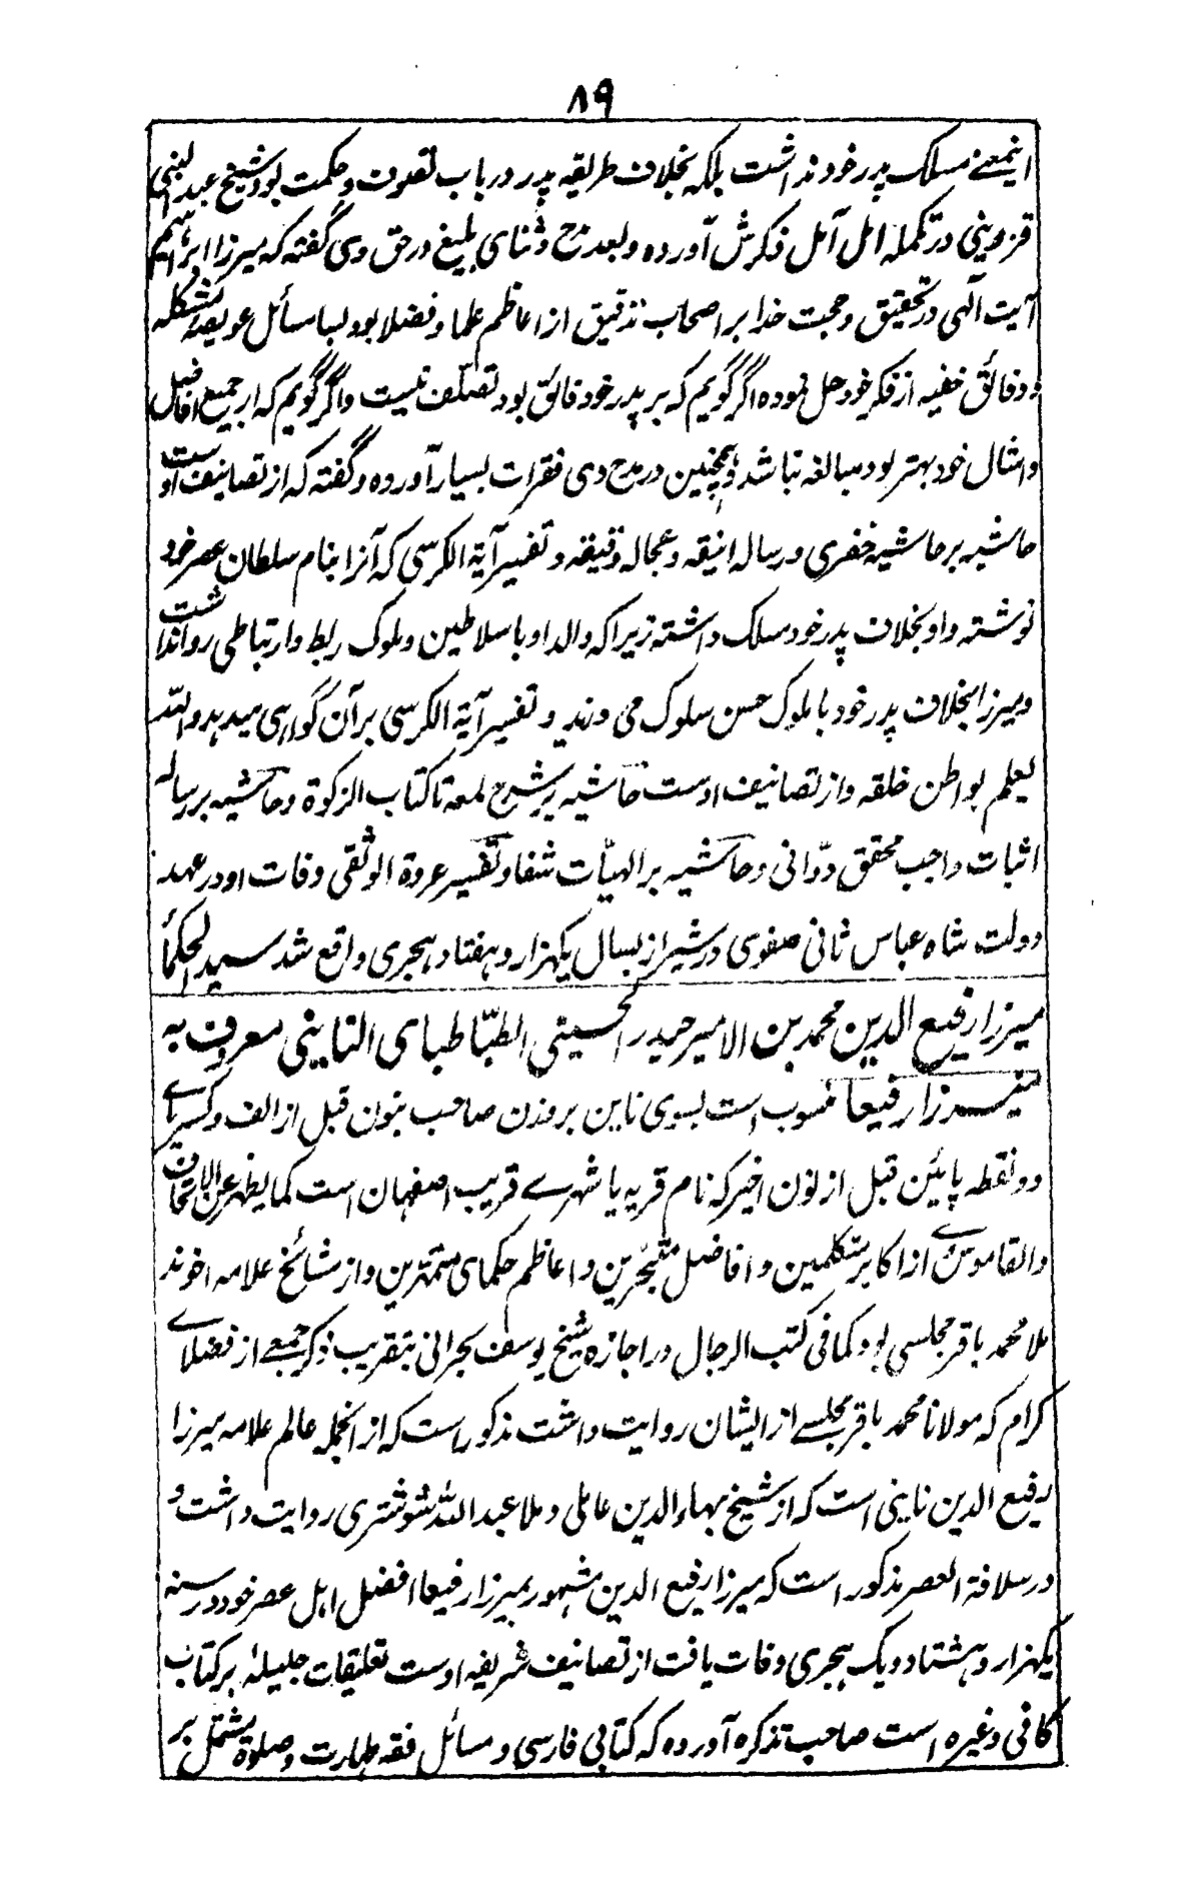 ۸۹
اینمعنے مسلک پدر خود نداشت بلکہ بخلاف طریقہ پدر در باب تصوف و حکمت بود شیخ عبد النبی
قزوینی در تکملہ امل آمل ذکرش آوردہ و بعد مدح و ثنای بلیغ در حق وی گفتہ کہ میرزا ابراہیم
آیت الٰہی در تحقیق و حجت خدا بر اصحاب تدقیق از اعاظم علما و فضلا بود بسا مسائل عویصہ مشکلہ
و دقائق خفیہ از فکر خود حل نمودہ اگر گویم کہ بر پدر خود فائق بود تصلف نیست و اگر گویم کہ از جمیع افاضل
و امثال خود بہتر بود مبالغہ نباشد و ہمچنین در مدح وی فقرات بسیار آوردہ و گفتہ کہ از تصانیف اوست
حاشیہ بر حاشیہ خفری و رسالہ انیقہ و عجالہ وقیقہ و تفسیر آیۃ الکرسی کہ آنرا بنام سلطان عصر خود
نوشتہ و او بخلاف پدر خود مسلک داشتہ زیرا کہ والد او با سلاطین و ملوک ربط و ارتباطی روا نداشت
و میرزا بخلاف پدر خود با ملوک حسن سلوک می ورزید و تفسیر آیۃ الکرسی بر آن گواہی میدہد واللہ
یعلم بواطن خلقہ و از تصانیف اوست حاشیہ بر شرح لمعہ تا کتاب الزکوۃ و حاشیہ بر رسالہ
اثبات واجب محقق دوّانی و حاشیہ بر الہیّات شفا و تفسیر عروۃ الوثقی وفات او در عہد
دولت شاہ عباس ثانی صفوی در شیراز بسال یکہزار و ہفتاد ہجری واقع شد سید الحکمأ
میرزا رفیع الدین محمد بن الامیر حیدر الحسینی الطبّاطبای النایینی معروف بہ
میرزا رفیعا منسوب است بسوی ناین بر وزن صاحب بنون قبل از الف و کسر یاے
دو نقطہ پائین قبل از نون اخیر کہ نام قریہ یا شہرے قریب اصفہان است کما یظہر عن الاتحاف
والقاموس وے از اکابر متکلمین و افاضل متبحرین و اعاظم حکمای متمہرین و از مشائخ علامہ اخوند
ملا محمد باقر مجلسی بود کما فی کتب الرجال در اجازہ شیخ یوسف بحرانی بتقریب ذکر جمعے از فضلاے
کرام کہ مولانا محمد باقر مجلسے از ایشان روایت داشت مذکور است کہ از انجملہ عالم علامہ میرزا
رفیع الدین ناینی است کہ از شیخ بہاء الدین عاملی و ملا عبد اللہ شوشتری روایت داشت و
در سلافۃ العصر مذکور است کہ میرزا رفیع الدین مشہور بمیرزا رفیعا افضل اہل عصر خود در سنہ
یکہزار و ہشتاد و یک ہجری وفات یافت از تصانیف شریفہ اوست تعلیقات جلیلہ بر کتاب
کافی وغیرہ است صاحب تذکرہ آوردہ کہ کتابی فارسی و مسائل فقہ طہارت و صلوۃ مشتمل بر